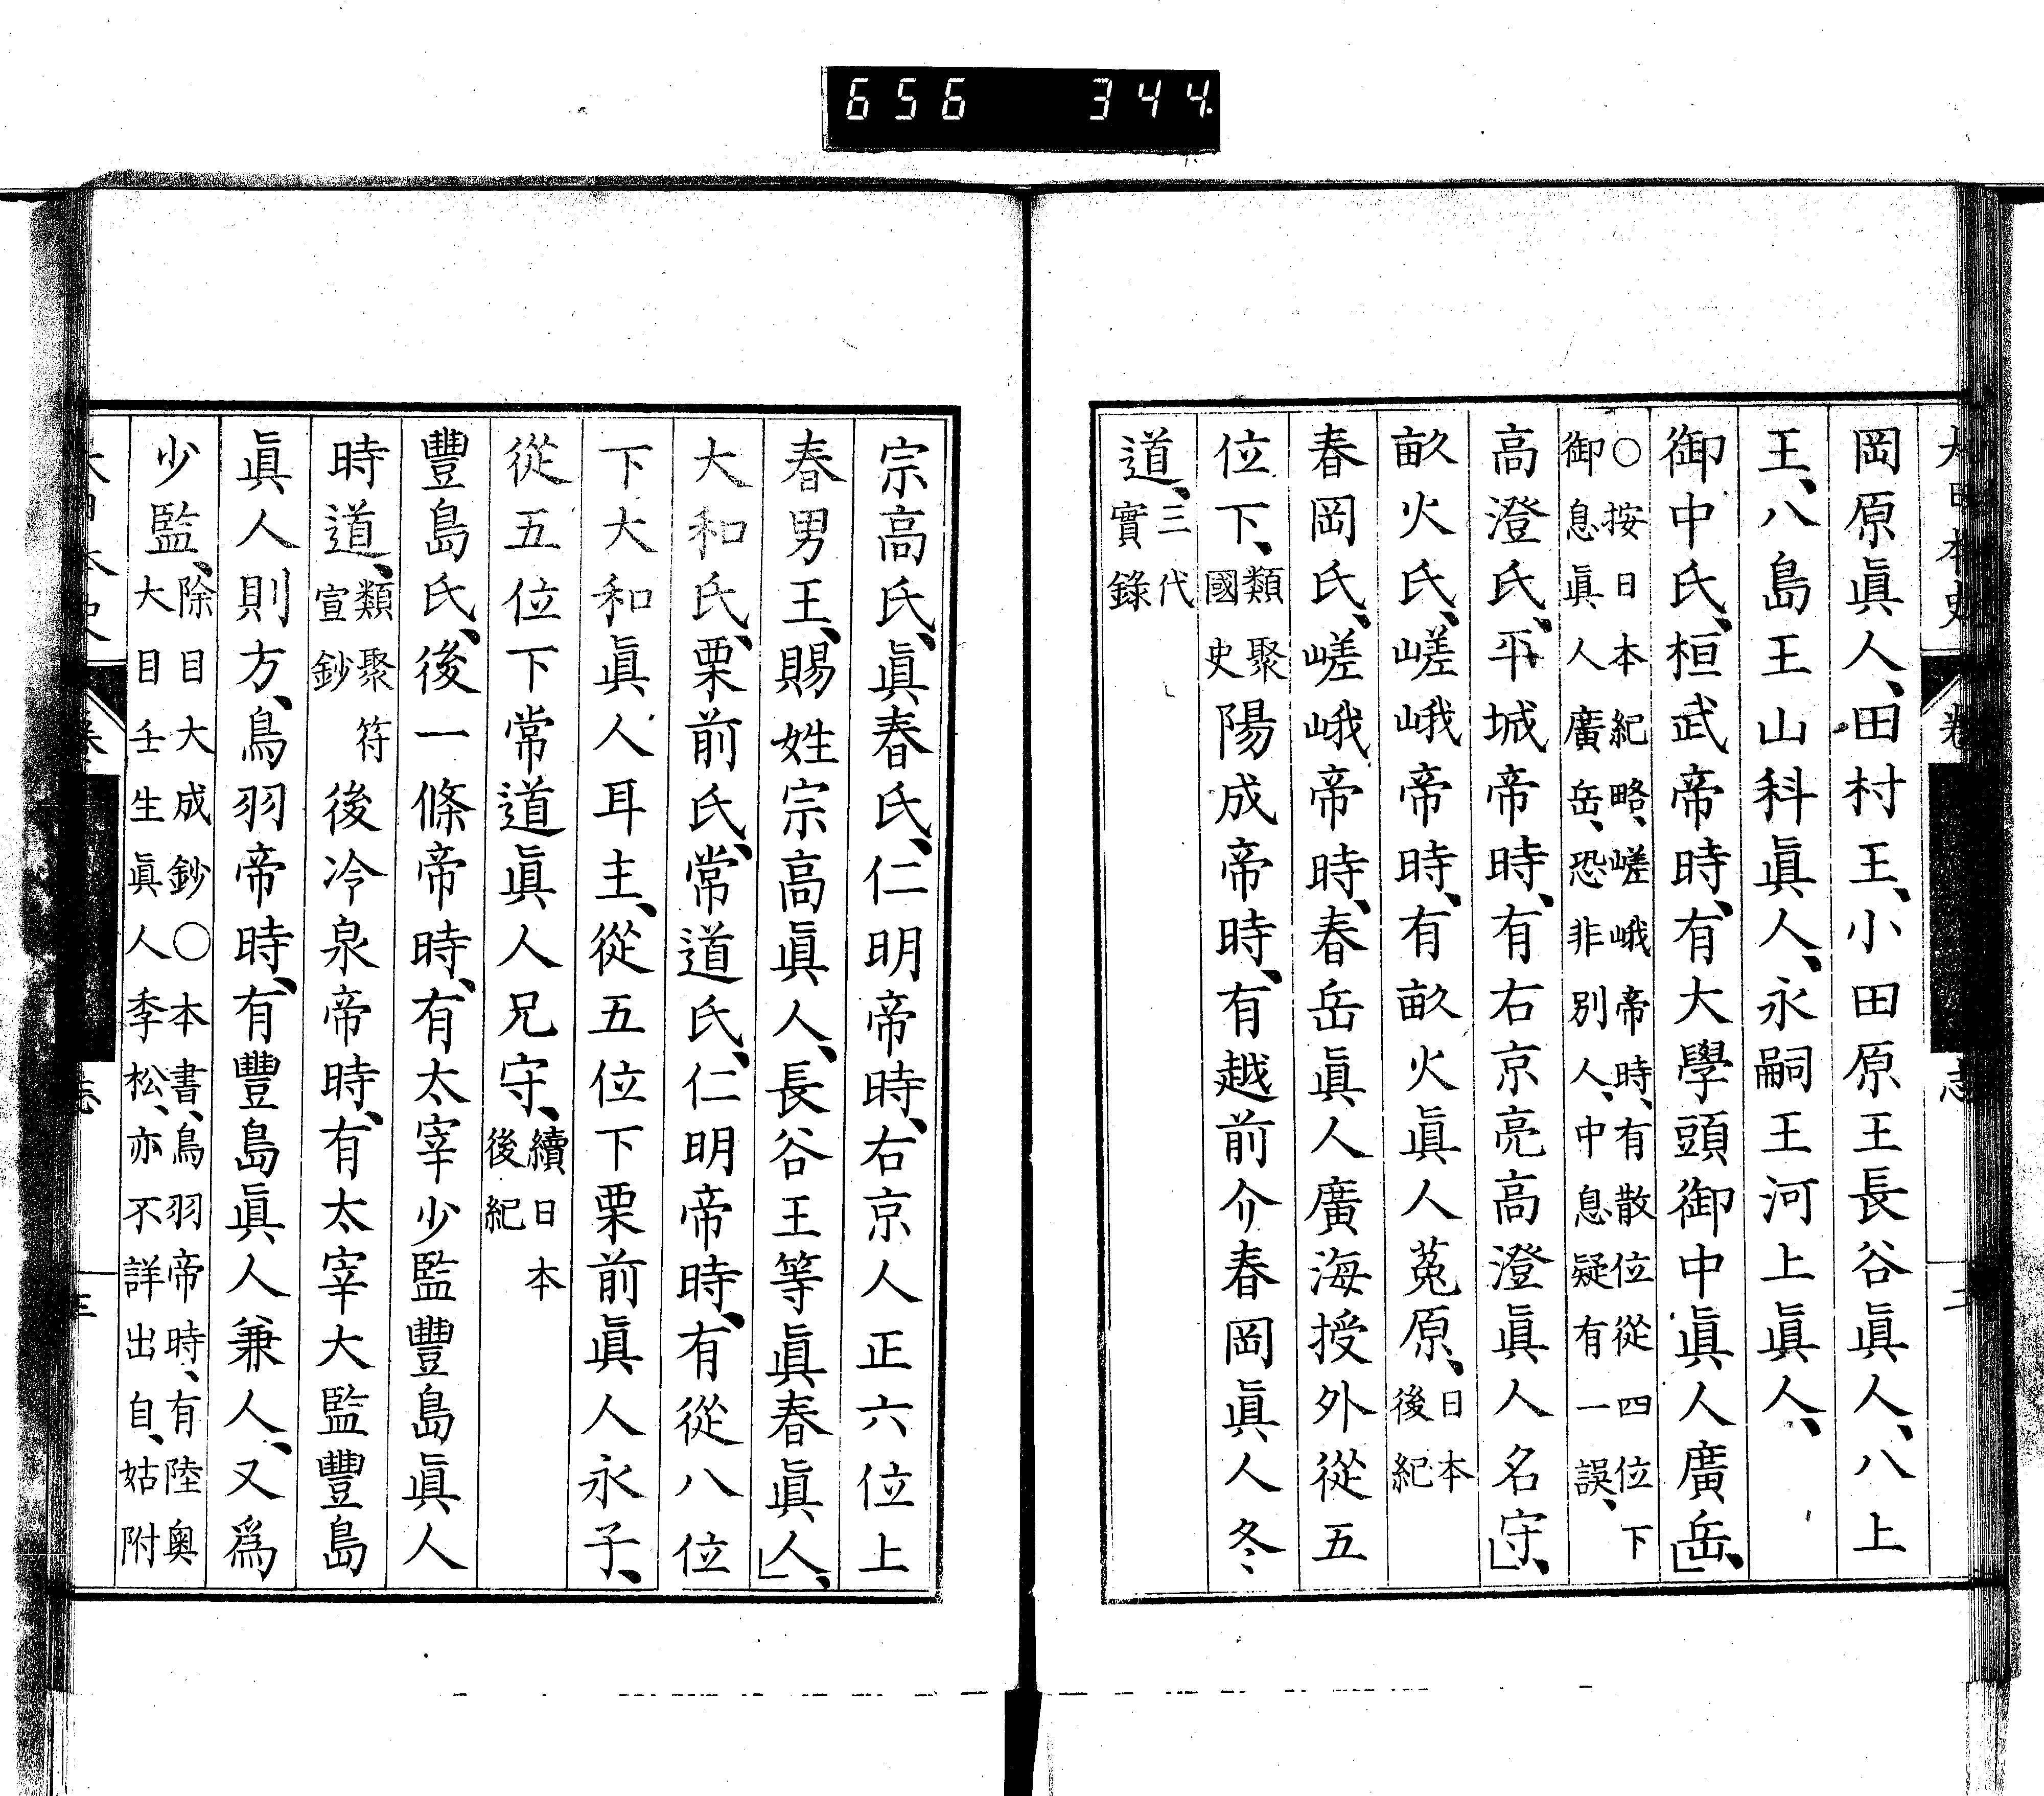 656 344
大日本史 卷 志 二
岡原眞人、田村王、小田原王長谷眞人、八上
王、八島王山科眞人、永嗣王河上眞人、
御中氏、桓武帝時、有大學頭御中眞人廣岳、」
○按日本紀略、嵯峨帝時、有散位從四位下
御息眞人廣岳、恐非別人、中息疑有一誤、
高澄氏、平城帝時、有右京亮高澄眞人名守、」
畝火氏、嵯峨帝時、有畝火眞人菟原、日本
後紀
春岡氏、嵯峨帝時、春岳眞人廣海授外從五
位下、類聚
國史
陽成帝時、有越前介春岡眞人冬
道、三代
實錄
宗高氏、眞春氏、仁明帝時、右京人正六位上
春男王、賜姓宗高眞人、長谷王等眞春眞人、」
大和氏、栗前氏、常道氏、仁明帝時、有從八位
下大和眞人耳主、從五位下栗前眞人永子、
從五位下常道眞人兄守、續日本
後紀
豐島氏、後一條帝時、有太宰少監豐島眞人
時道、類聚符
宣鈔
後冷泉帝時、有太宰大監豐島
眞人則方、鳥羽帝時、有豐島眞人兼人、又爲
少監、除目大成鈔○本書、鳥羽帝時、有陸奧
大目壬生眞人季松、亦不詳出自、姑附
大日本史 志 三